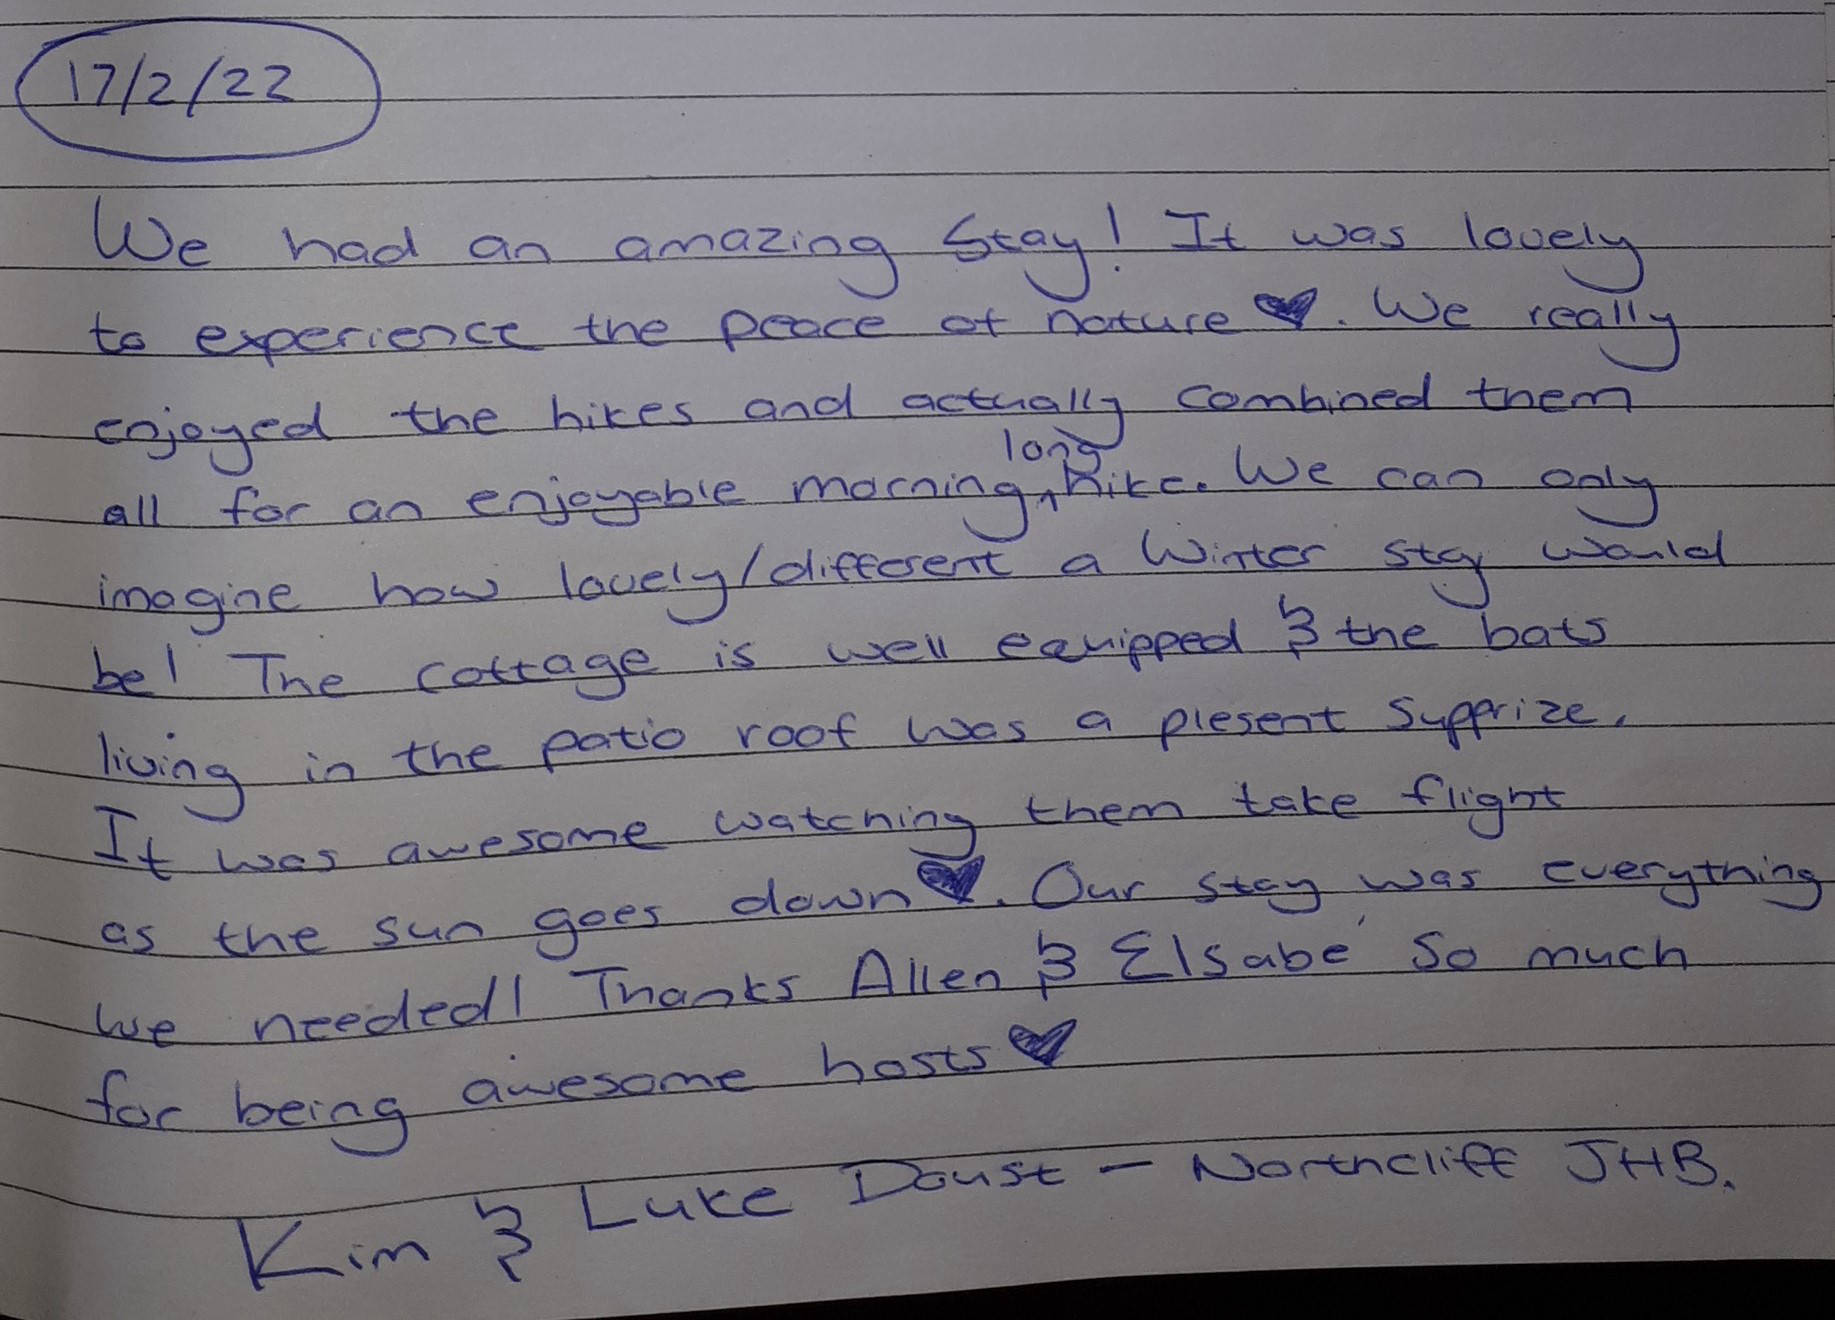 17/2/22
We had an amazing Stay! It was lovely
to experience the peace of nature ♥. We really
enjoyed the hikes and actually combined them
all for an enjoyable morning ^long hike. We can only
imagine how lovely/different a Winter stay would
be! The cottage is well equipped & the bats
living in the patio roof was a plesent Supprize.
It was awesome watching them take flight
as the sun goes down ♥. Our stay was everything
we needed! Thanks Allen & Elsabé So much
for being awesome hosts ♥
Kim & Luke Doust – Northcliff JHB.